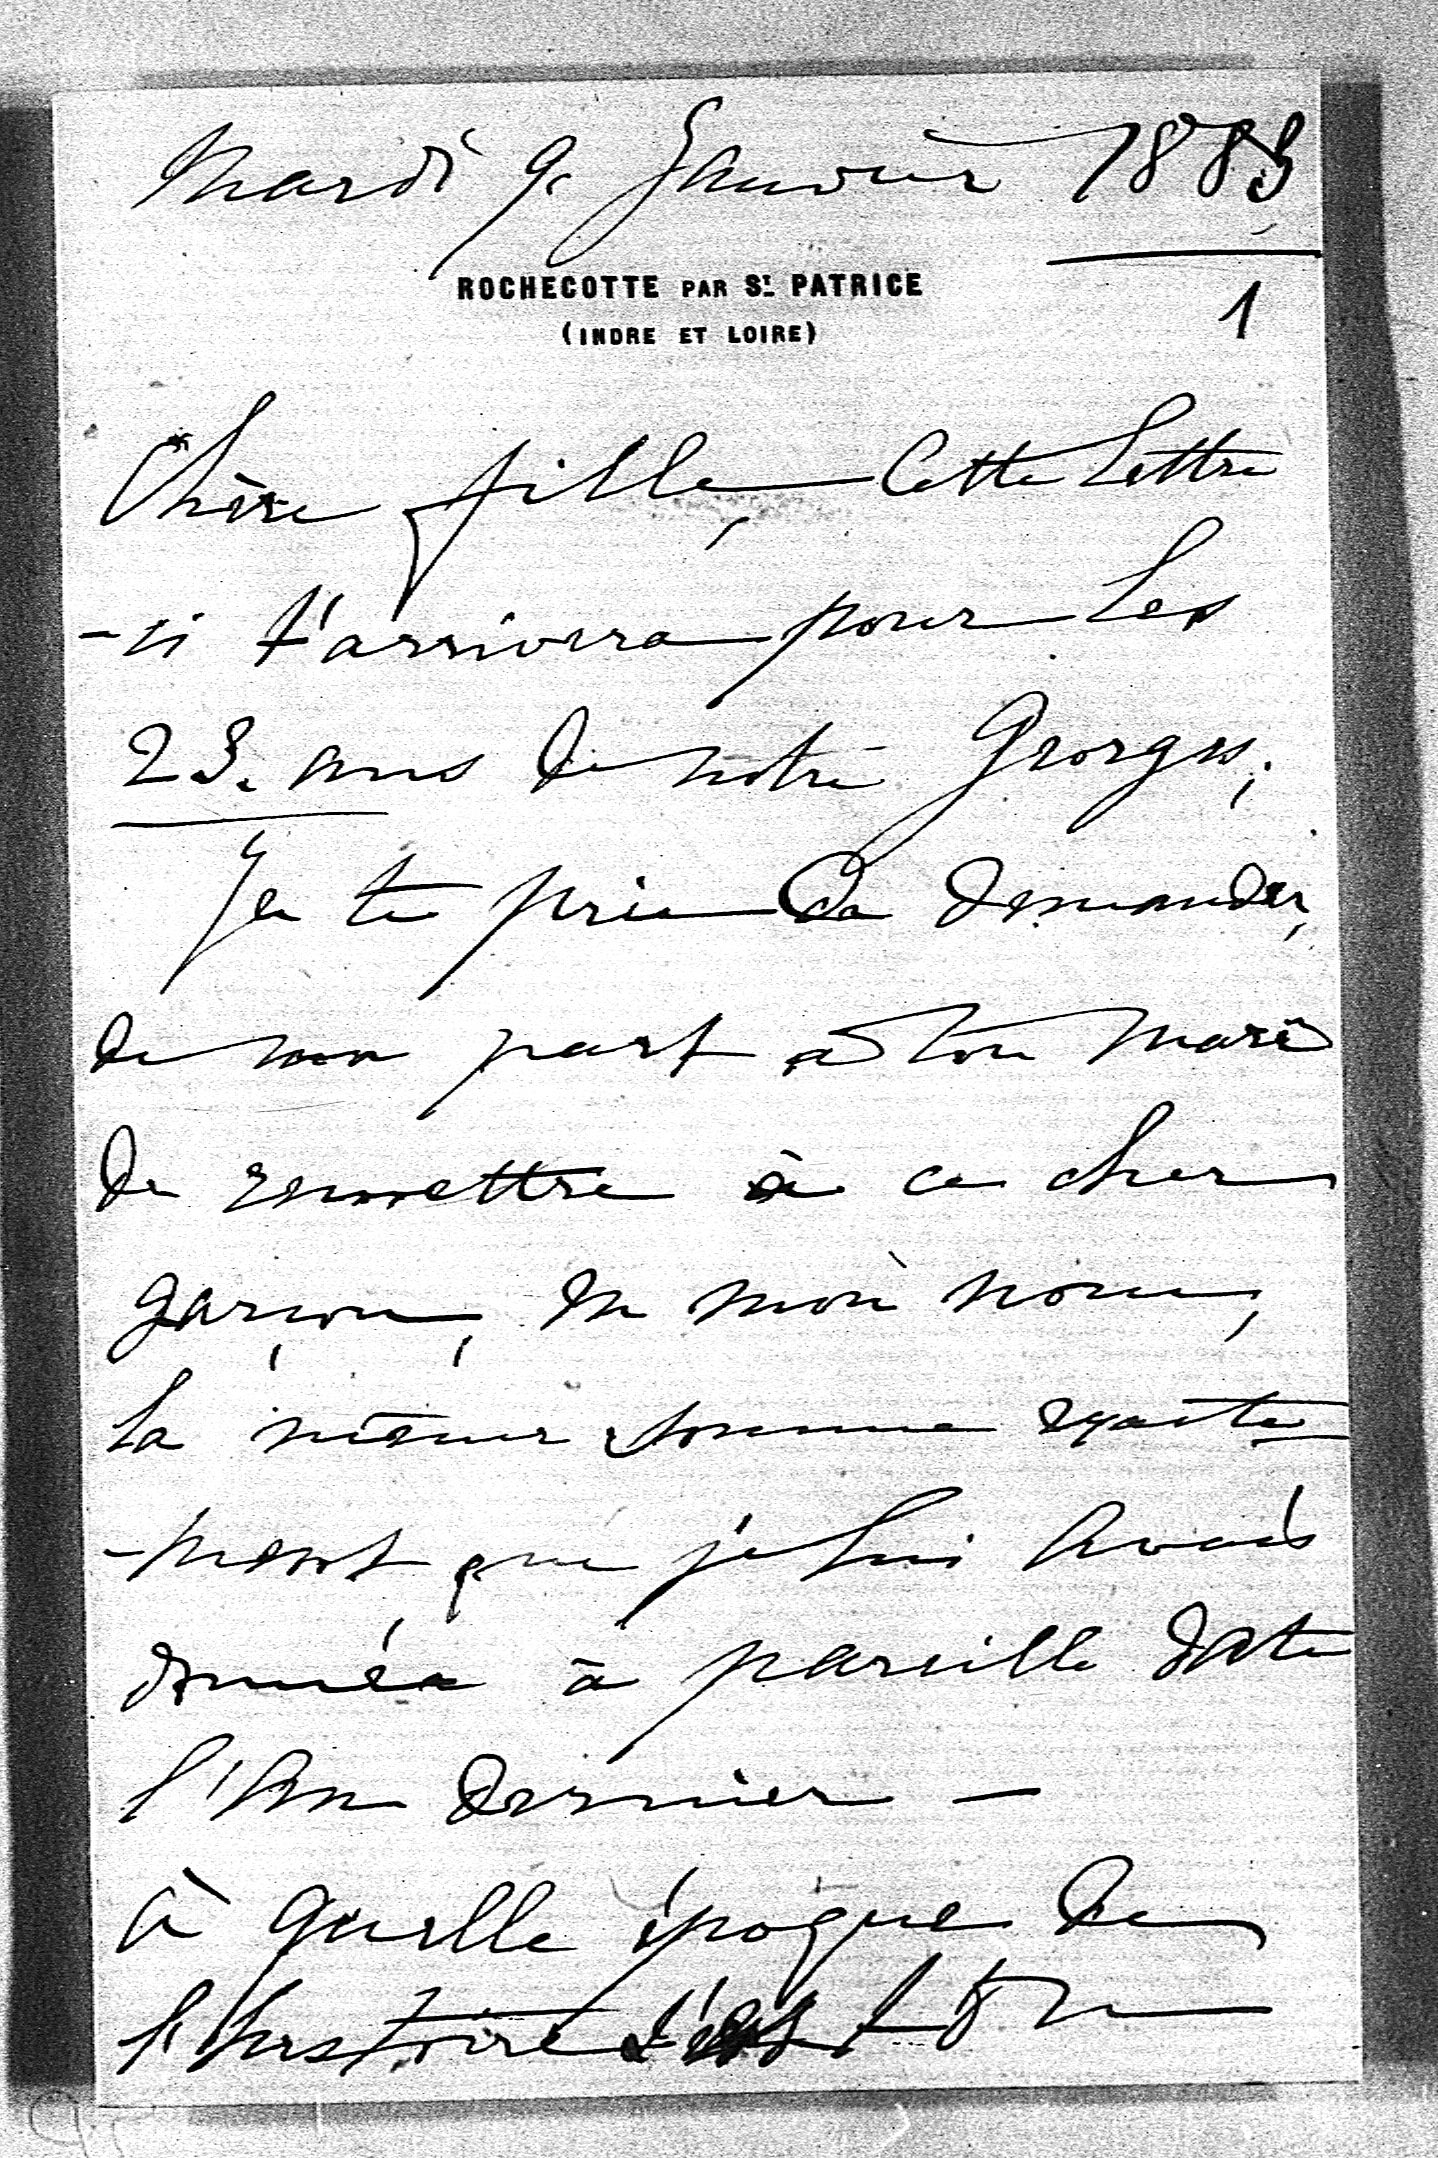 Mardi 9. Janvier 1883
ROCHECOTTE PAR ST. PATRICE
(INDRE ET LOIRE)
1
Chère fille, Cette lettre
-ci t'arrivera pour les
23. ans de notre Georges;
Je te prie de demander,
de ma part à ton mari
de remettre à ce cher
garçon, en mon nom,
la même somme exacte-
-ment que je lui avais
donnée à pareille date
l'an dernier —
à quelle époque de
l'histoire s'est-on